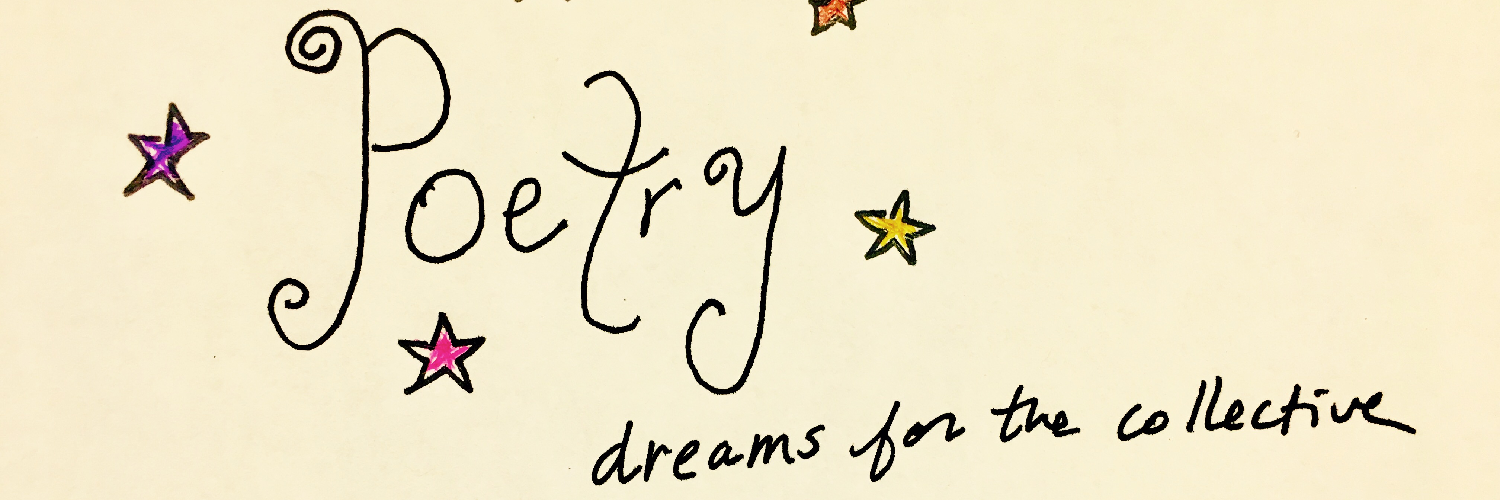 Poetry
dreams for the collective